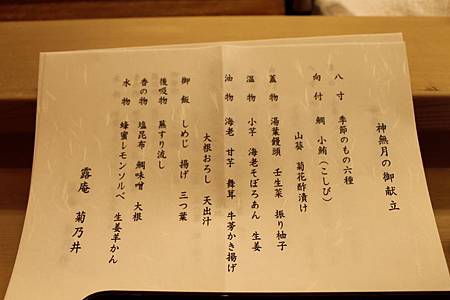 神無月の御献立
八寸 季節のもの六種
向付 鯛 小鮪(こしび)
山葵 菊花酢漬け
蓋物 湯葉饅頭 壬生菜 振り柚子
温物 小芋 海老そぼろあん 生姜
油物 海老 甘芋 舞茸 牛蒡かき揚げ
大根おろし 天出汁
御飯 しめじ 揚げ 三つ葉
後吸物 蕪すり流し
香の物 塩昆布 鯛味噌 大根
水物 蜂蜜レモンソルベ 生姜羊かん
露庵 菊乃井